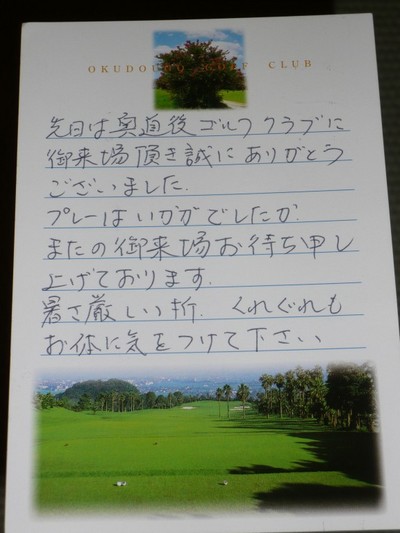 OKUDOUGO GOLF CLUB
先日は奥道後ゴルフクラブに
御来場頂き誠にありがとう
ございました.
プレーはいかがでしたか.
またの御来場お待ち申し
上げております.
暑さ厳しい折. くれぐれも
お体に気をつけて下さい